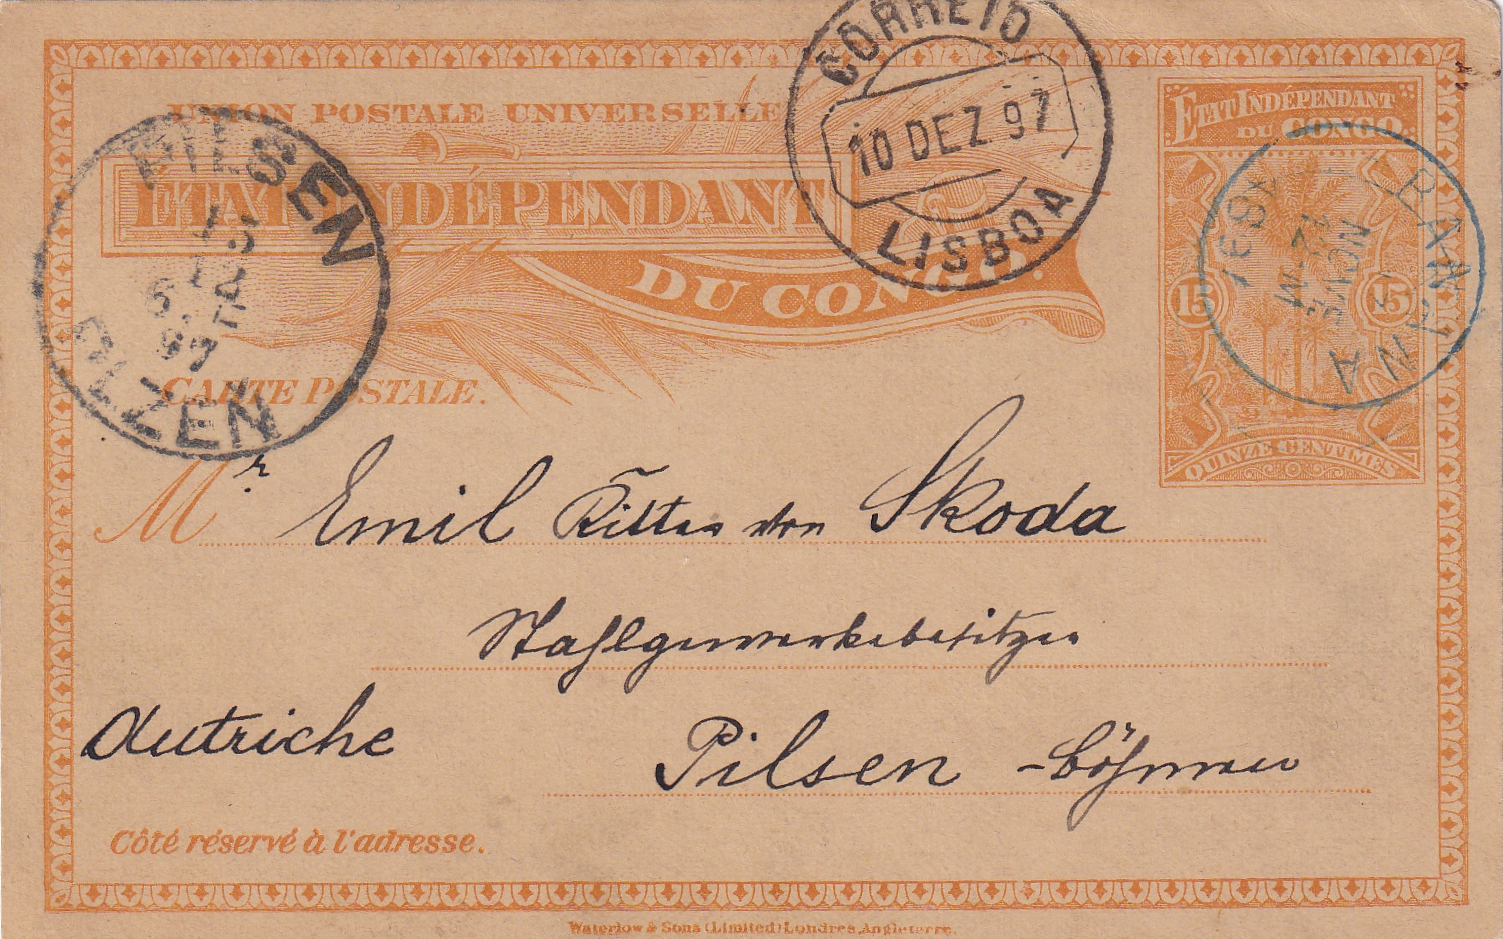 UNION POSTALE UNIVERSELLE
ÉTAT INDÉPENDANT
DU CONGO.
CARTE POSTALE.
CORREIO
10 DEZ 97
LISBOA
ÉTAT INDÉPENDANT
DU CONGO
15 15
QUINZE CENTIMES
BANANA
NOV
1897
PILSEN
15
12
97
PLZEŇ
Mr Emil Ritter von Skoda
Stahlgewerkebesitzer
Autriche
Pilsen - Böhmen
Côté réservé à l'adresse.
Waterlow & Sons (Limited) Londres, Angleterre.